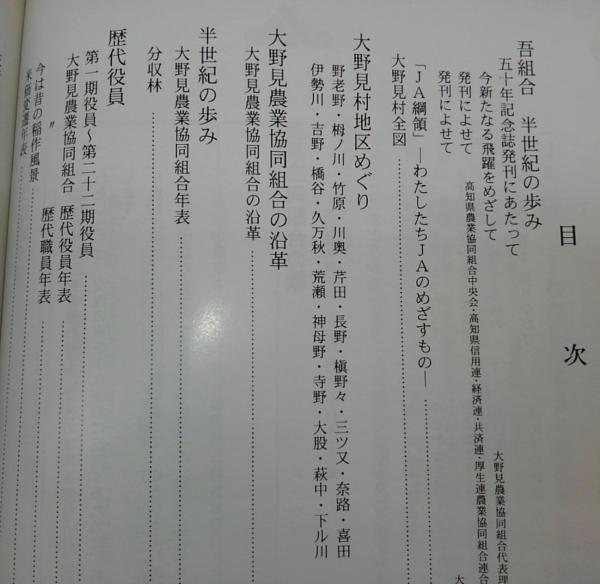 目次
吾組合　半世紀の歩み
五十年記念誌発刊にあたって
大野見農業協同組合代表理
今新たなる飛躍をめざして
高知県農業協同組合中央会・高知県信用連・経済連・共済連・厚生連農業協同組合連合
発刊によせて
大
発刊によせて
「JA綱領」―わたしたちJAのめざすもの―
大野見村全図
大野見村地区めぐり
野老野・栂ノ川・竹原・川奥・芹田・長野・槇野々・三ツ又・奈路・喜田
伊勢川・吉野・橋谷・久万秋・荒瀬・神母野・寺野・大股・萩中・下ル川
大野見農業協同組合の沿革
大野見農業協同組合の沿革
半世紀の歩み
大野見農業協同組合年表
分収林
歴代役員
第一期役員～第二十二期役員
大野見農業協同組合　歴代役員年表
〃　歴代職員年表
今は昔の稲作風景
米価変遷年表